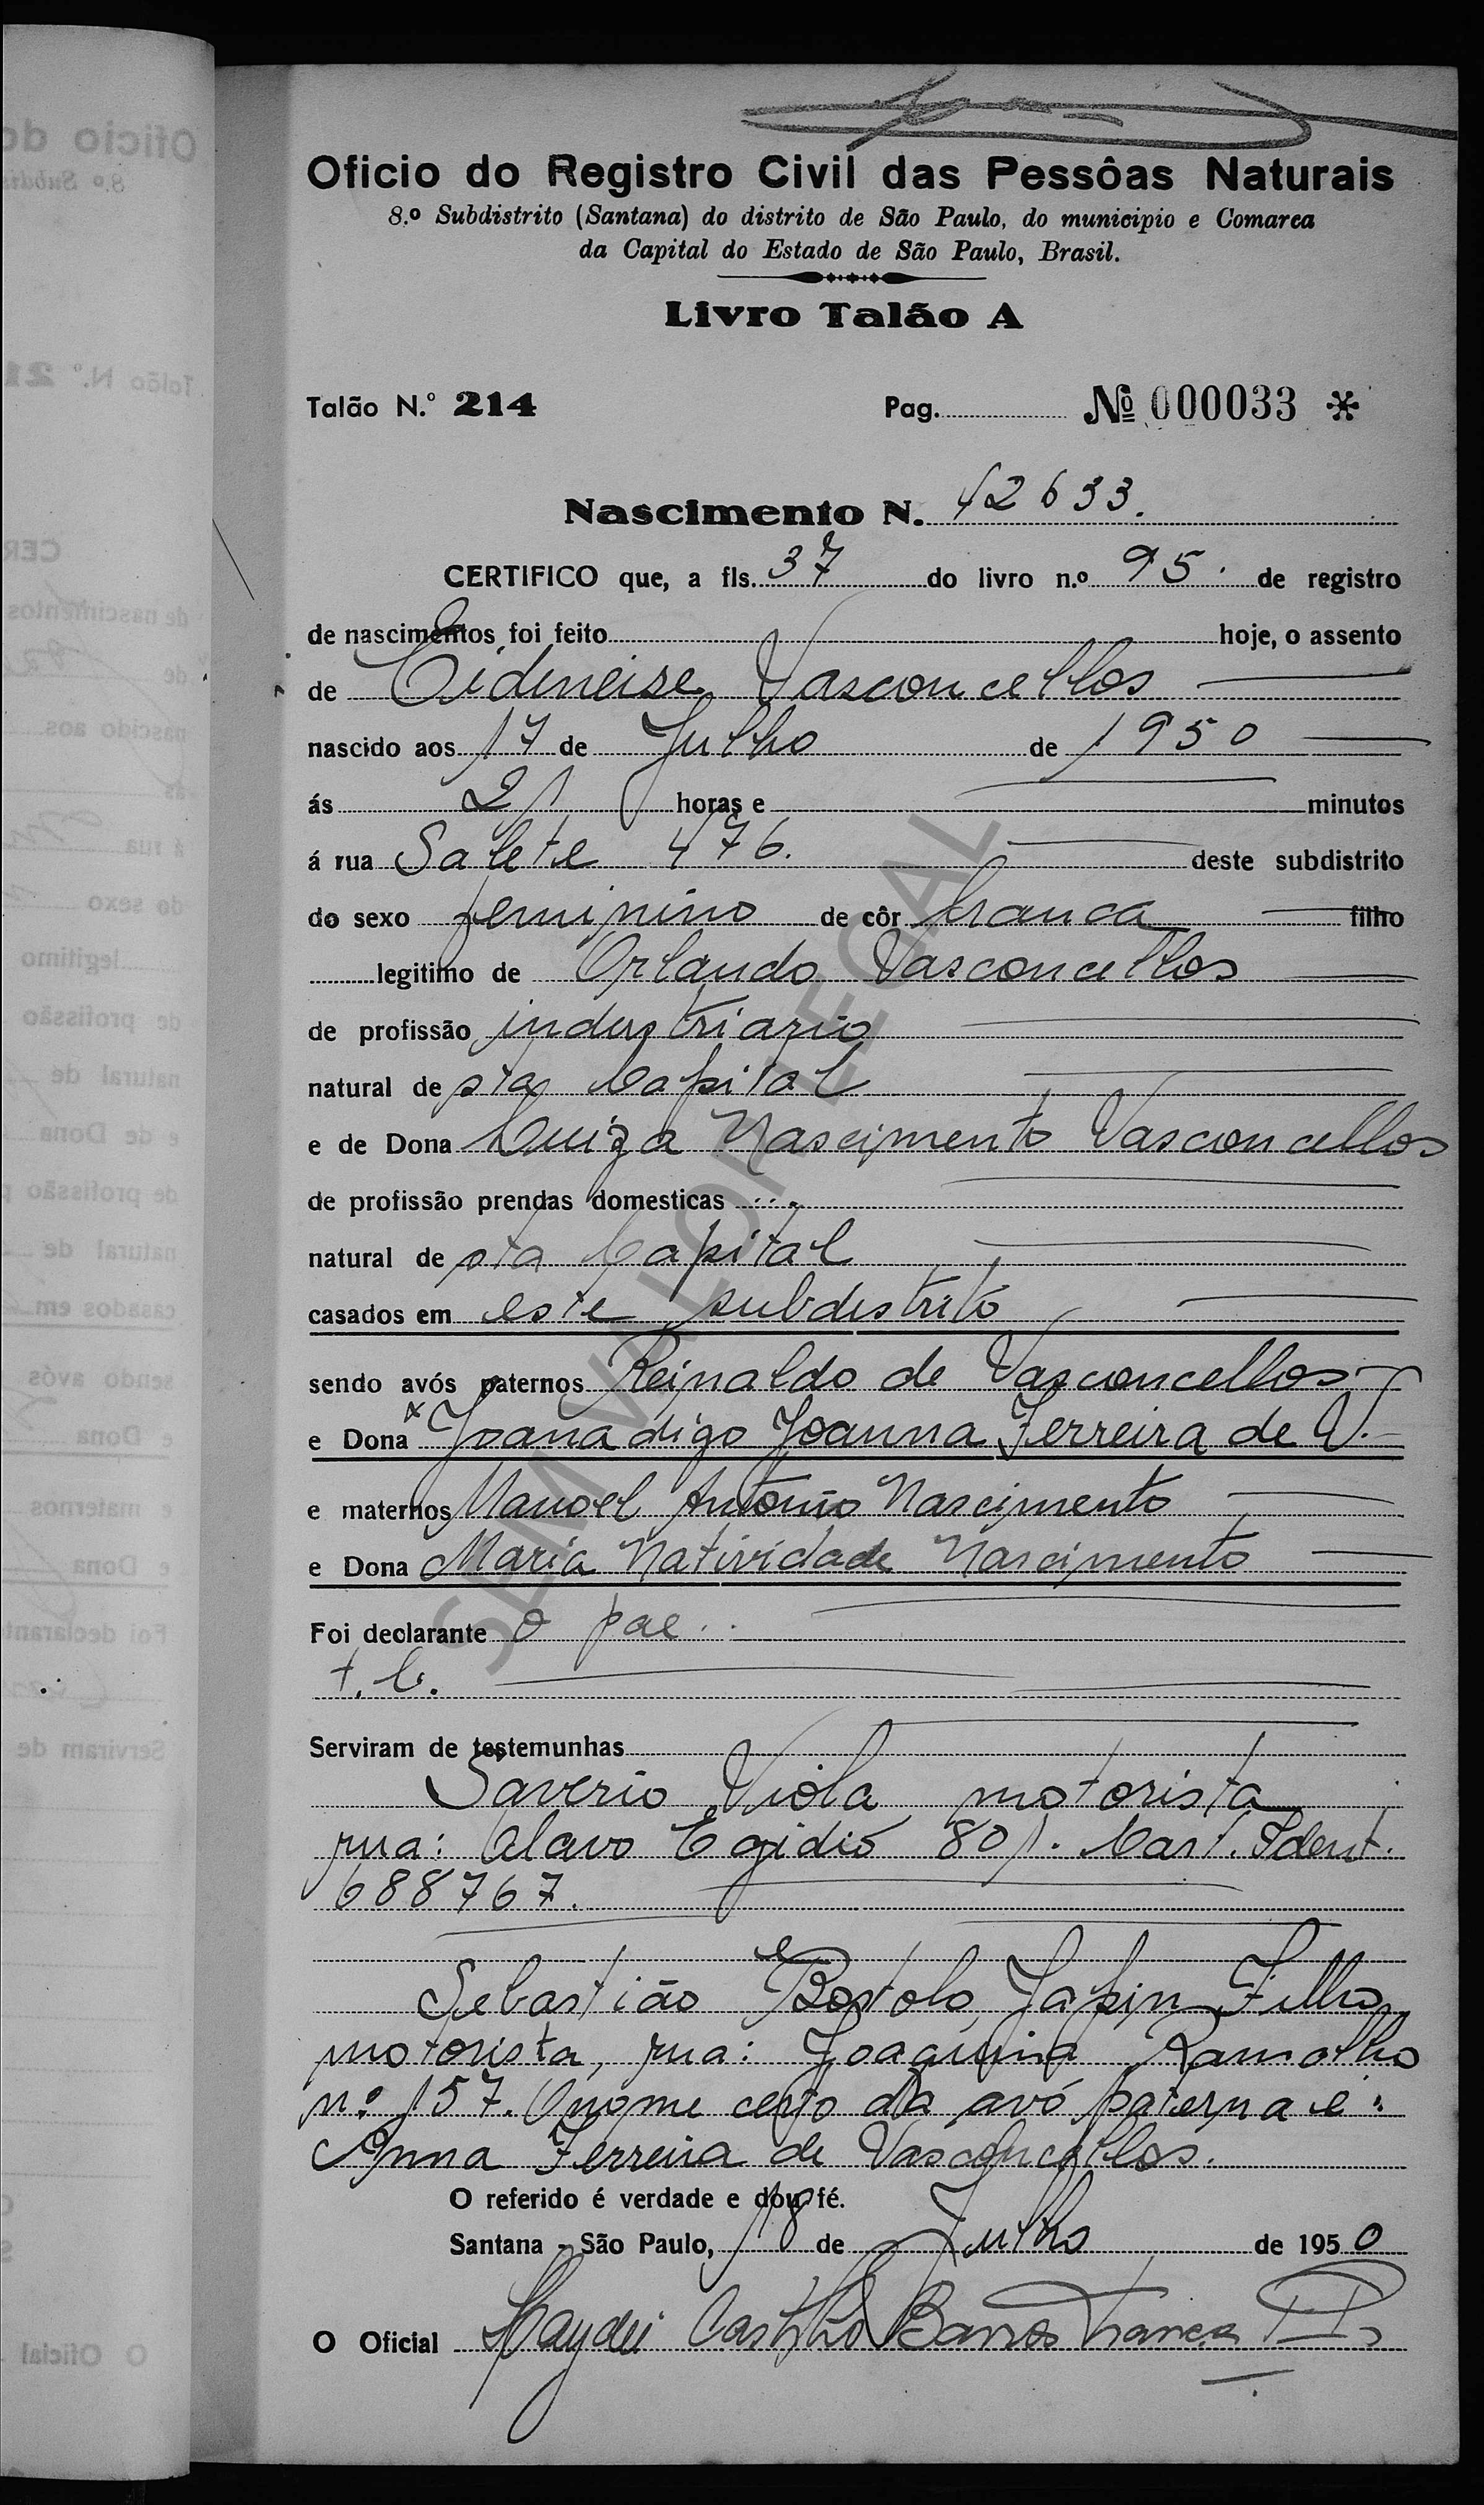 Oficio do Registro Civil das Pessôas Naturais
8.º Subdistrito (Santana) do distrito de São Paulo, do municipio e Comarca
da Capital do Estado de São Paulo, Brasil.
Livro Talão A
Talão N.º 214 Pag. Nº 000033 *
Nascimento N. 42633.
CERTIFICO que, a fls. 37 do livro n.º 95. de registro
de nascimentos foi feito hoje, o assento
de Cidineise Vasconcellos
nascido aos 17 de Julho de 1950
ás 21 horas e minutos
á rua Salete 476. deste subdistrito
do sexo feminino de côr branca filho
legitimo de Orlando Vasconcellos
de profissão industriario
natural de sta Capital
e de Dona Cuiza Nascimento Vasconcellos
de profissão prendas domesticas
natural de sta Capital
casados em este subdistrito
sendo avós paternos Reinaldo de Vasconcellos
e Dona Joana digo Joanna Ferreira de V.
e maternos Manoel Antonio Nascimento
e Dona Maria Natividade Nascimento
Foi declarante o pae..
t. C.
Serviram de testemunhas
Saverio Viola motorista
rua: Olavo Egidio 801. Cart. Ident.
688767.
Sebastião Bortolo Japin Filho,
motorista, rua: Joaquina Ramalho
nº 157. O nome certo da avó paterna é:
Anna Ferreira de Vasconcellos.
O referido é verdade e dou fé.
Santana - São Paulo, 18 de Julho de 1950
O Oficial Haydée Castilho Barros França
SEM VALOR LEGAL